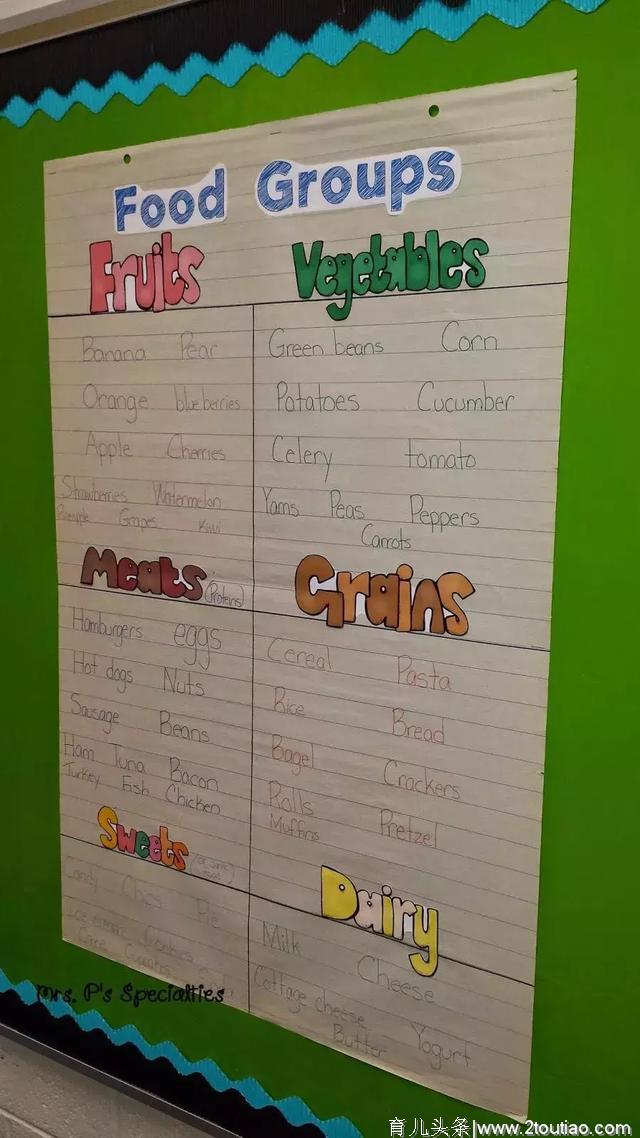 Food Groups
Fruits
Banana Pear
Orange blueberries
Apple Cherries
Strawberries Watermelon
Pineapple Grapes Kiwi
Vegetables
Green beans Corn
Potatoes Cucumber
Celery tomato
Yams Peas Peppers
Carrots
Meats (Proteins)
Hamburgers eggs
Hot dogs Nuts
Sausage Beans
Ham Tuna Bacon
Turkey Fish Chicken
Grains
Cereal Pasta
Rice Bread
Bagel Crackers
Rolls Pretzel
Muffins
Sweets
Candy Chips Pie
Ice cream Cookies
Dairy
Milk Cheese
Cottage cheese Yogurt
Butter
Mrs. P's Specialties
育儿头条|www.2toutiao.com